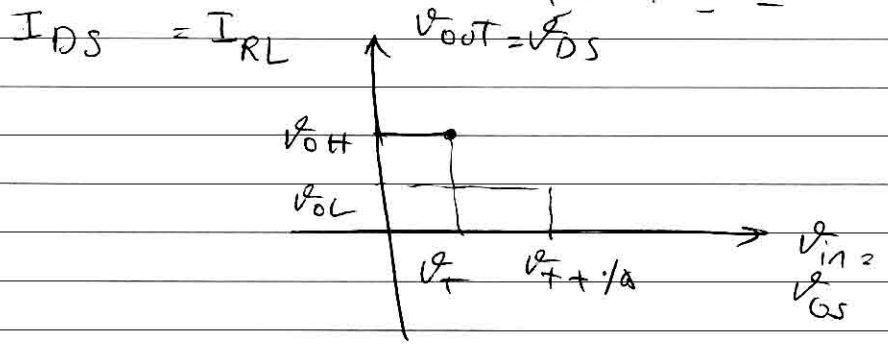 I_DS = I_RL
V_OUT = V_DS
V_OH
V_OL
V_T
V_in =
V_GS